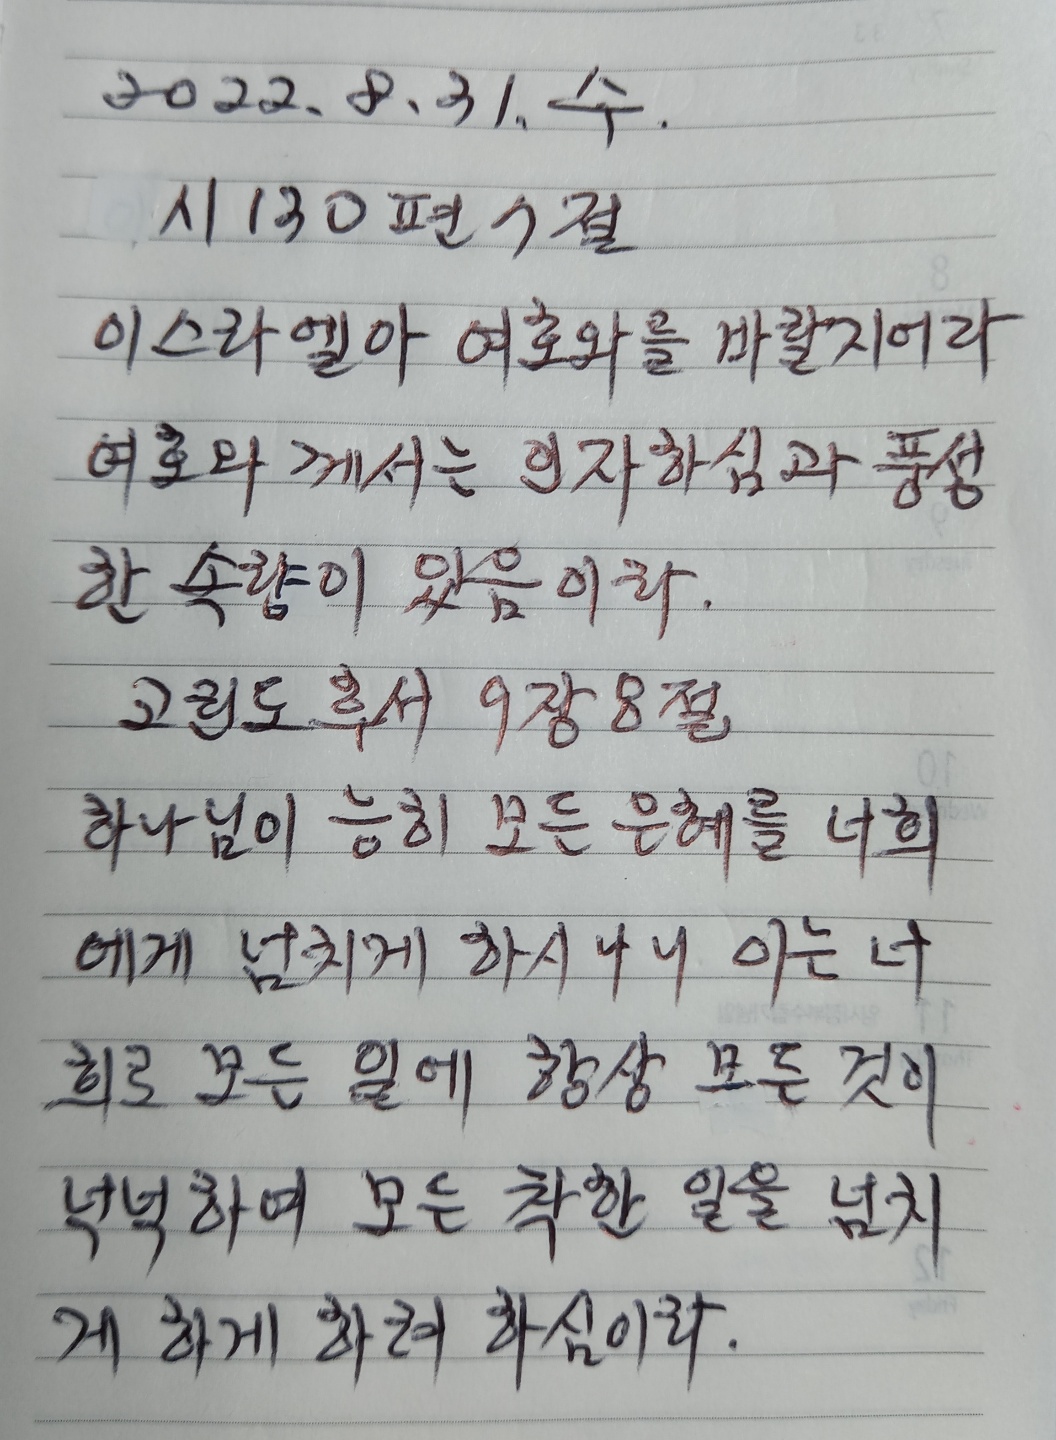 2022. 8. 31. 수.
시 130 편 7 절
이스라엘아 여호와를 바랄지어라
여호와 께서는 인자하심과 풍성
한 속량이 있음이라.
고린도 후서 9장 8절
하나님이 능히 모든 은혜를 너희
에게 넘치게 하시나니 이는 너
희로 모든 일에 항상 모든 것이
넉넉하여 모든 착한 일을 넘치
게 하게 하려 하심이라.